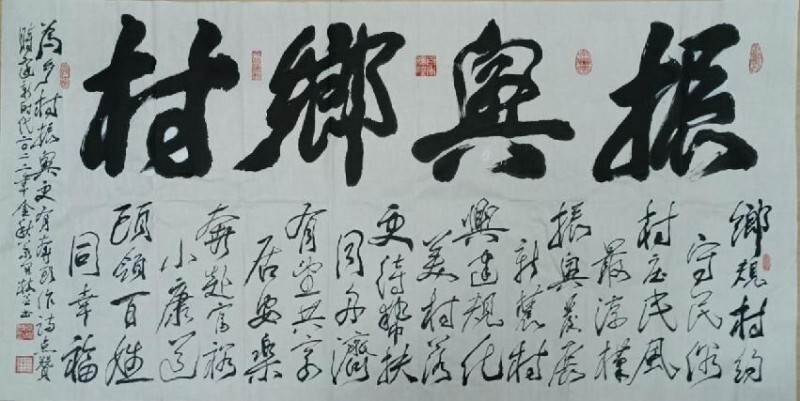 振興鄉村
鄉規村約
守民俗
村庄民風
最淳樸
振興發展
新農村
興建規化
美村落
更待幫扶
同舟濟
有望共享
居安樂
奔赴富裕
小康道
頤領百姓
同幸福
為乡村振興更實奔
作詩点贊
時逢新时代二〇二二年金秋
書